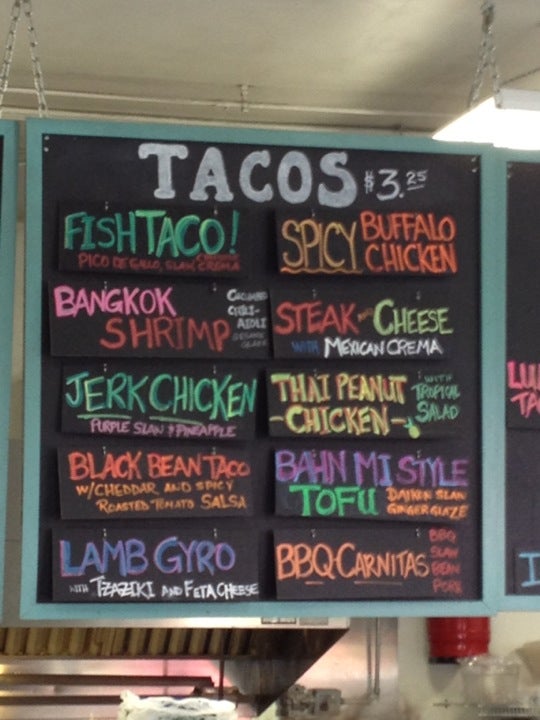 TACOS $3.25
FISH TACO!
PICO DE GALLO, SLAW, CREMA
SPICY BUFFALO
CHICKEN
BANGKOK
SHRIMP
CUCUMBER
CHILI-
AIOLI
SESAME
STEAK AND CHEESE
WITH MEXICAN CREMA
JERK CHICKEN
PURPLE SLAW & PINEAPPLE
THAI PEANUT
-CHICKEN-
WITH
TROPICAL
SALAD
BLACK BEAN TACO
W/CHEDDAR AND SPICY
ROASTED-TOMATO SALSA
BAHN MI STYLE
TOFU
DAIKON SLAW
GINGER GLAZE
LAMB GYRO
WITH TZAZIKI AND FETA CHEESE
BBQ CARNITAS
BBQ
SLAW
BEAN
PORK